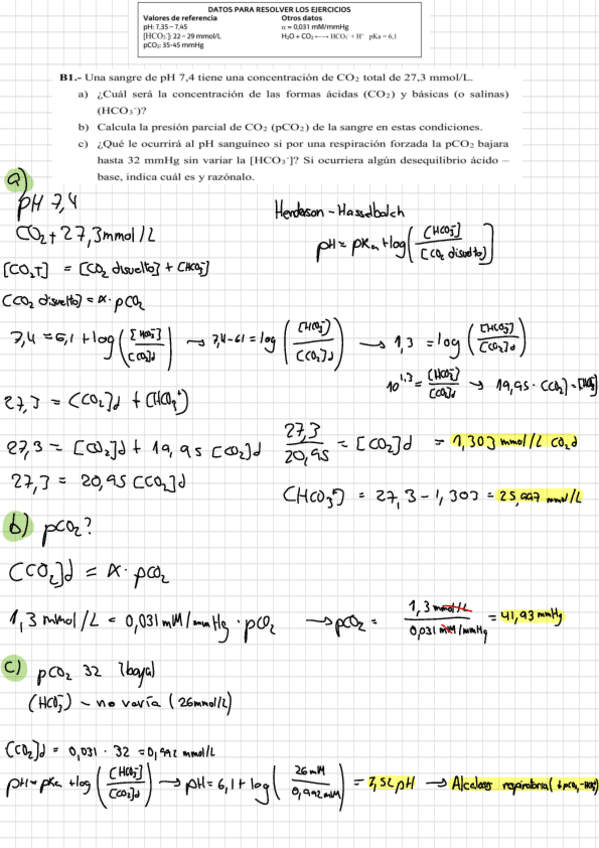 DATOS PARA RESOLVER LOS EJERCICIOS
Valores de referencia Otros datos
pH: 7,35 – 7,45 α = 0,031 mM/mmHg
[HCO₃⁻]: 22 – 29 mmol/L H₂O + CO₂ ←→ HCO₃⁻ + H⁺ pKa = 6,1
pCO₂: 35-45 mmHg
B1.- Una sangre de pH 7,4 tiene una concentración de CO₂ total de 27,3 mmol/L.
a) ¿Cuál será la concentración de las formas ácidas (CO₂) y básicas (o salinas)
(HCO₃⁻)?
b) Calcula la presión parcial de CO₂ (pCO₂) de la sangre en estas condiciones.
c) ¿Qué le ocurrirá al pH sanguíneo si por una respiración forzada la pCO₂ bajara
hasta 32 mmHg sin variar la [HCO₃⁻]? Si ocurriera algún desequilibrio ácido –
base, indica cuál es y razónalo.
a)
pH 7,4
Henderson - Hasselbalch
CO₂t 27,3 mmol/L
pH = pKa + log([HCO₃⁻]/[CO₂ disuelto])
[CO₂T] = [CO₂ disuelto] + [HCO₃⁻]
[CO₂ disuelto] = α · pCO₂
7,4 = 6,1 + log([HCO₃⁻]/[CO₂]d) → 7,4-6,1 = log([HCO₃⁻]/[CO₂]d) → 1,3 = log([HCO₃⁻]/[CO₂]d)
10^1,3 = [HCO₃⁻]/[CO₂]d → 19,95 · [CO₂] = [HCO₃⁻]
27,3 = [CO₂]d + [HCO₃⁻]
27,3 = [CO₂]d + 19,95 [CO₂]d 27,3/20,95 = [CO₂]d = 1,303 mmol/L CO₂d
27,3 = 20,95 [CO₂]d
[HCO₃⁻] = 27,3 - 1,303 = 25,997 mmol/L
b) pCO₂?
[CO₂]d = α · pCO₂
1,3 mmol/L = 0,031 mM/mmHg · pCO₂ → pCO₂ = 1,3 mmol/L / 0,031 mM/mmHg = 41,93 mmHg
c) pCO₂ 32 (baja)
[HCO₃⁻] - no varía (26 mmol/L)
[CO₂]d = 0,031 · 32 = 0,992 mmol/L
pH = pKa + log([HCO₃⁻]/[CO₂]d) → pH = 6,1 + log(26 mM/0,992 mM) = 7,52 pH → Alcalosis respiratoria (↓pCO₂, -HCO₃⁻)